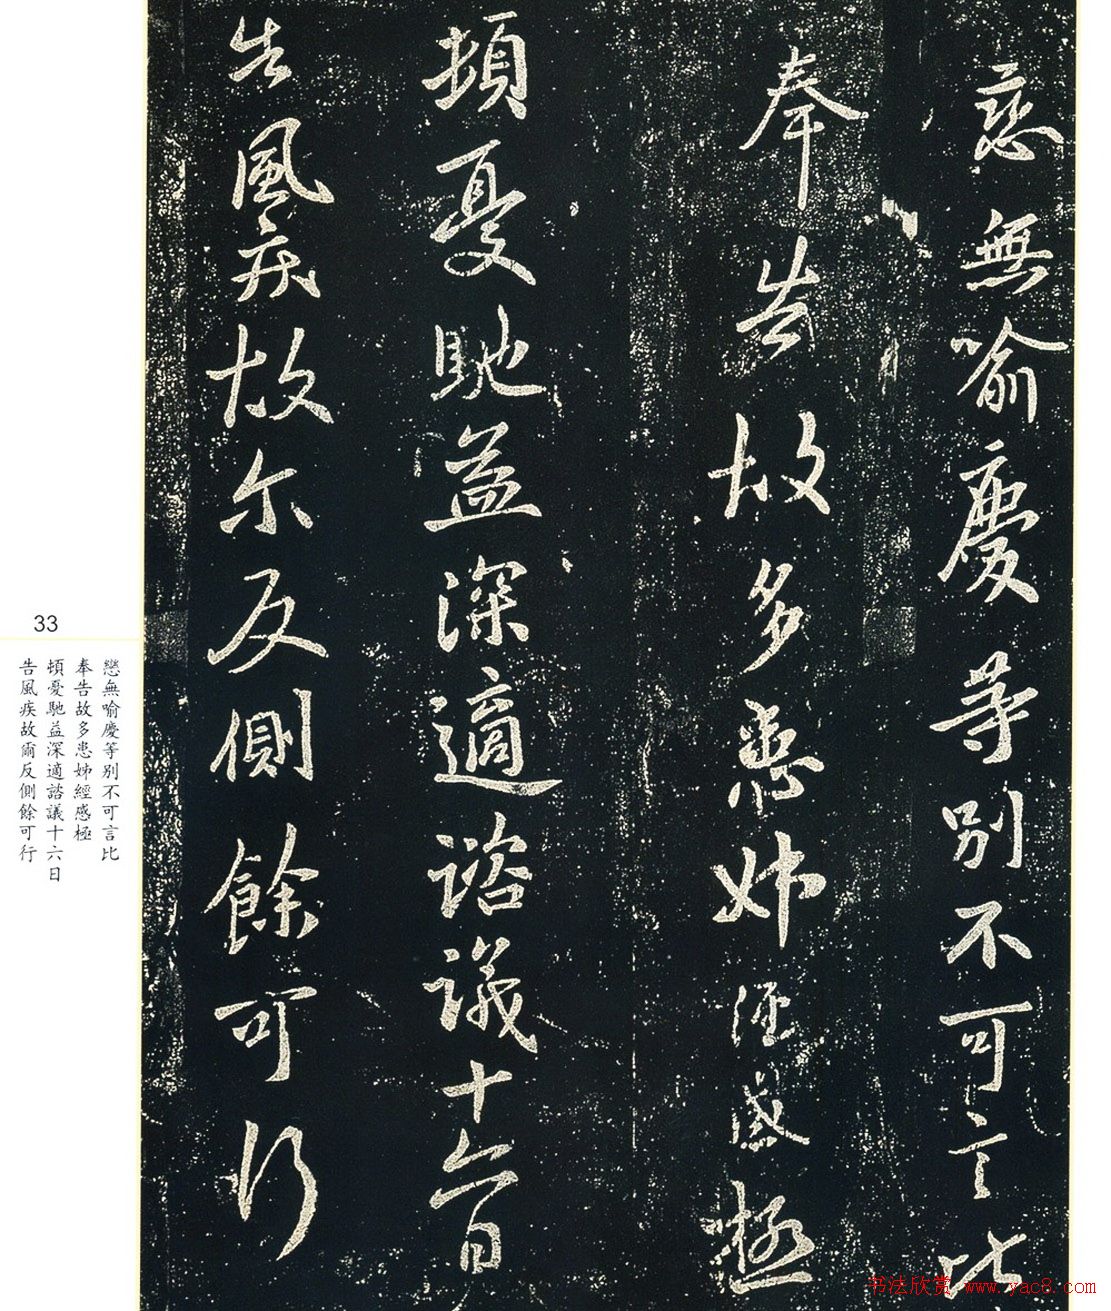 戀無喻慶等別不可言比
奉告故多患姊經感極
頓憂馳益深適諮議十六日
告風疾故尔反側餘可行
33
戀無喻慶等別不可言比
奉告故多患姊經感極
頓憂馳益深適諮議十六日
告風疾故爾反側餘可行
书法欣赏 www.yac8.com